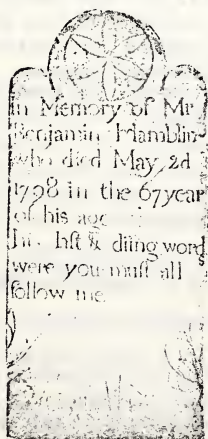 In Memory of Mr
Benjamin Hamblin
who died May 2d
1798 in the 67 year
of his age
His last & diing words
were you must all
follow me